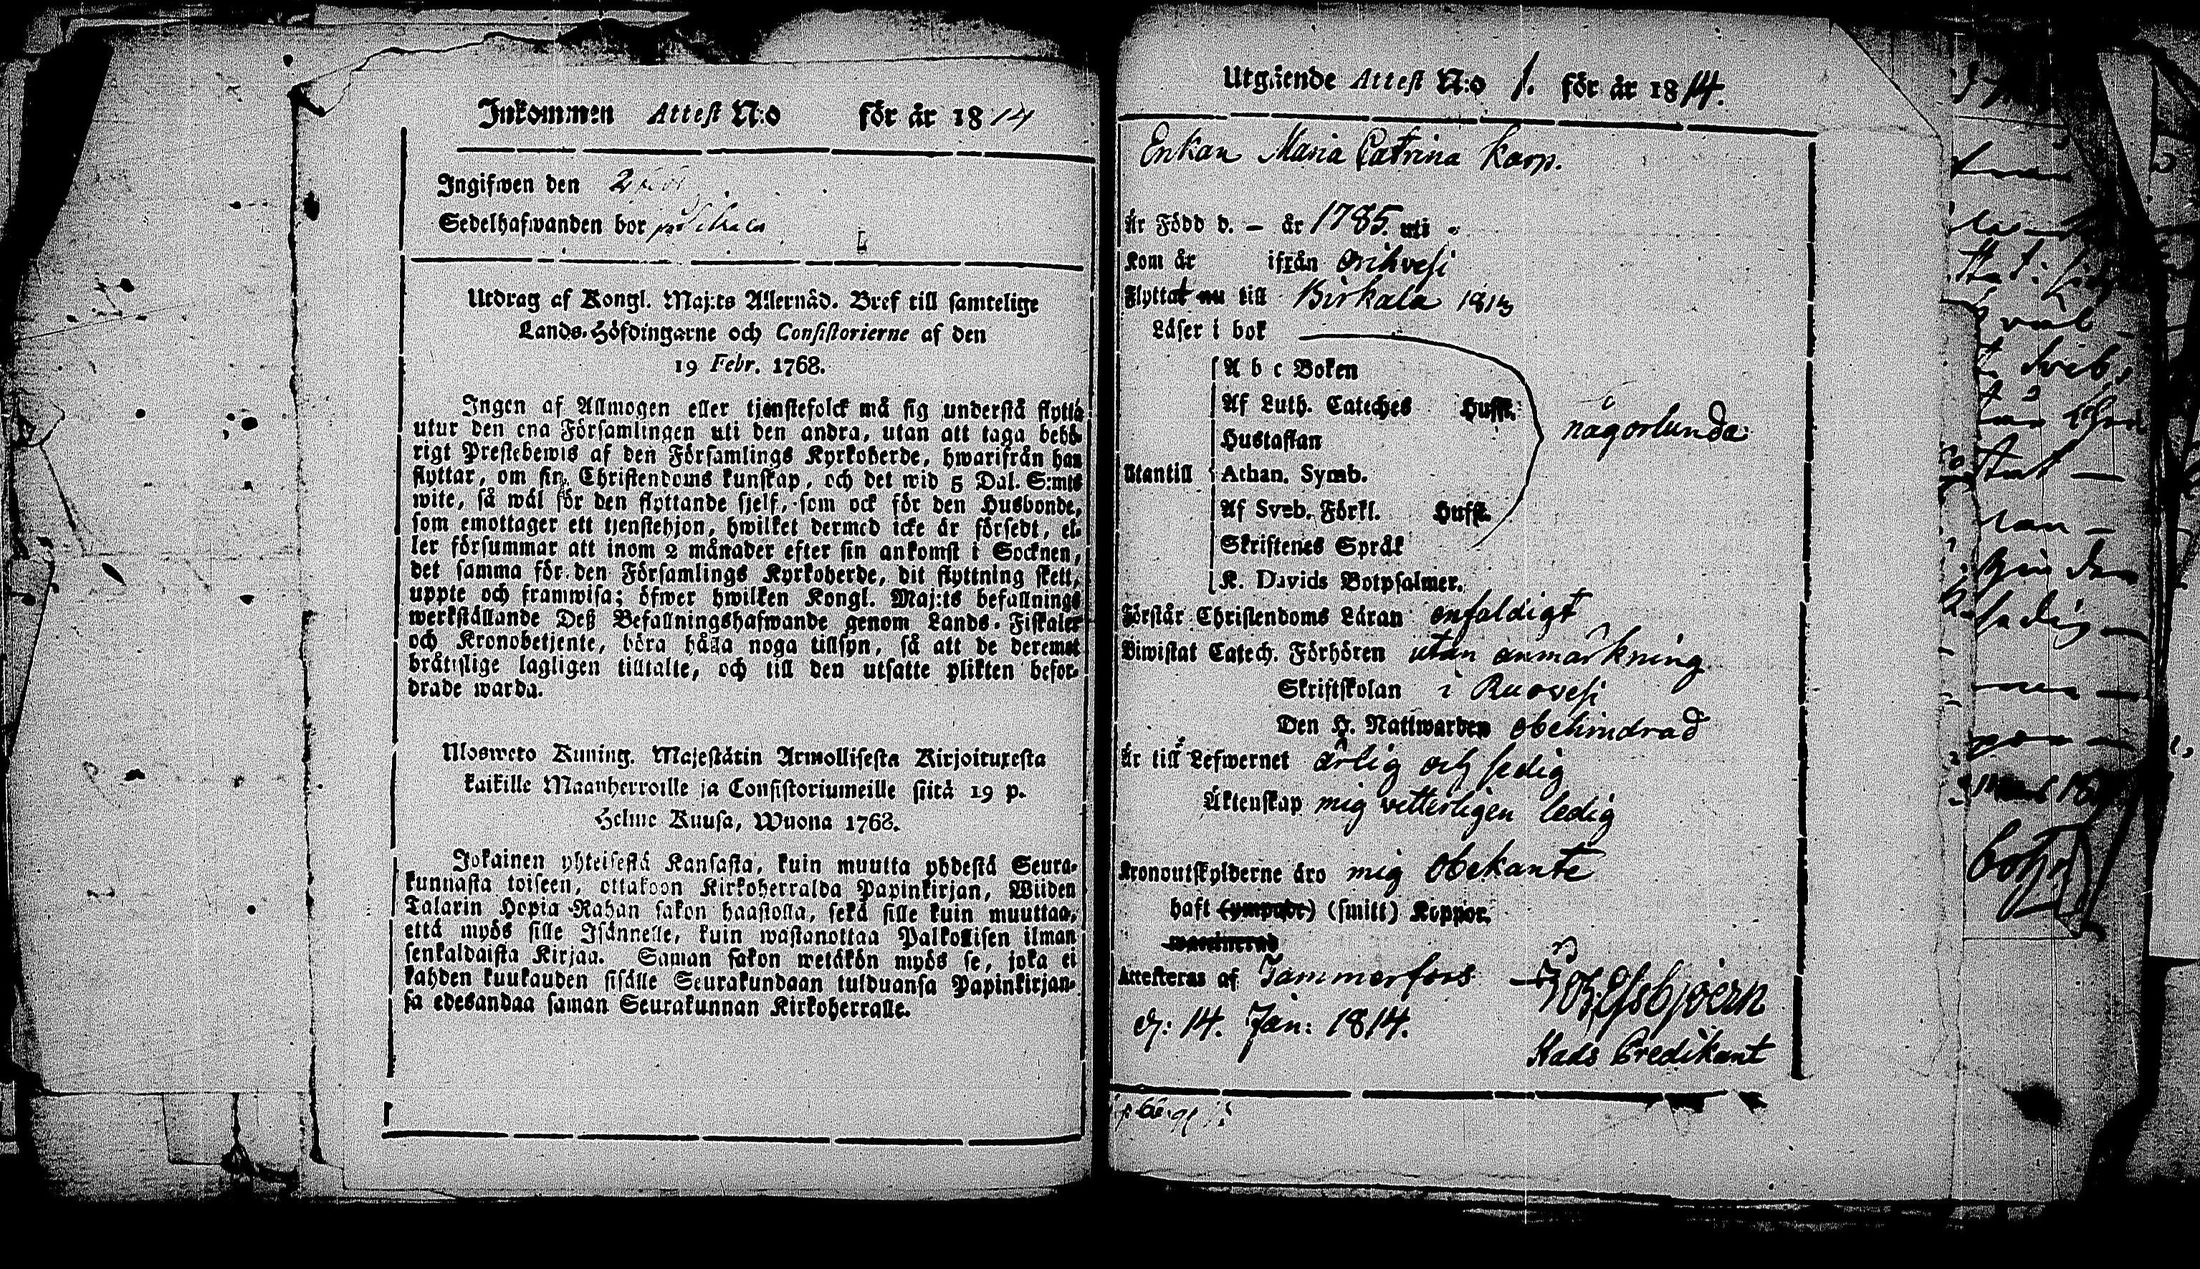 Inkommen Attest N:o för år 1814
Ingifwen den 2
Sedelhafwanden bor på
Utdrag af Kongl. Maj:ts Allernåd. Bref till samtelige
Lands-Höfdingarne och Consistorierne af den
19 Febr. 1768.
Ingen af Allmogen eller tjenstefolck må sig understå flytta
utur den ena Församlingen uti den andra, utan att taga behö-
rigt Prestebewis af den Församlings Kyrkoherde, hwarifrån han
flyttar, om sin Christendoms kunskap, och det wid 5 Dal. S:mts
wite, så wäl för den flyttande sjelf, som ock för den Husbonde,
som emottager ett tjenstehjon, hwilket dermed icke är försedt, el-
ler försummar att inom 2 månader efter sin ankomst i Socknen,
det samma för den Församlings Kyrkoherde, dit flyttning skett,
uppte och framwisa; öfwer hwilken Kongl. Maj:ts befallnings
werkställande Deß Befallningshafwande genom Lands-Fiskaler
och Kronobetjente, böra hålla noga tillsyn, så att de deremot
bråtslige lagligen tilltalte, och till den utsatte plikten befor-
drade warda.
Ulosweto Kuning. Majestätin Armollisesta Kirjoituxesta
kaikille Maanherroille ja Consistoriumeille siitä 19 p.
Helme Kuusa, Wuona 1768.
Jokainen yhteisestä Kansasta, kuin muutta yhdestä Seura-
kunnasta toiseen, ottakoon Kirkoherralda Papinkirjan, Wiiden
Talarin Hopia Rahan sakon haastolla, sekä sille kuin muuttaa,
että myös sille Isännelle, kuin wastanottaa Palkollisen ilman
senkaldaista Kirjaa. Saman sakon wetäkön myös se, joka ei
kahden kuukauden sisälle Seurakundaan tulduansa Papinkirjan-
sa edesandaa saman Seurakunnan Kirkoherralle.
Utgående Attest N:o 1. för år 1814.
Enkan Maria Catrina Karp.
Är Född d. – år 1785. uti
Kom år ifrån Orihvesi
Flyttat nu till Birkala 1813
Läser i bok
A b c Boken
Af Luth. Cateches Hufst.
någorlunda
Hustaflan
Utantill Athan. Symb.
Af Sveb. Förkl. Hufst.
Skriftenes Språk
K. Davids Botpsalmer.
Förstår Christendoms Läran enfaldigt
Biwistat Catech. Förhören utan anmärkning
Skriftskolan i Ruovesi
Den H. Nattwarden obehindrad
Är till Lefwernet ärlig och sedig
Äktenskap mig vetterligen ledig
Kronoutskylderne äro mig obekante
haft (ympade) (smitt) Koppor.
waccinerad
Attesteras af Tammerfors
d: 14. Jan: 1814.
Esbjoern
Stads Predikant